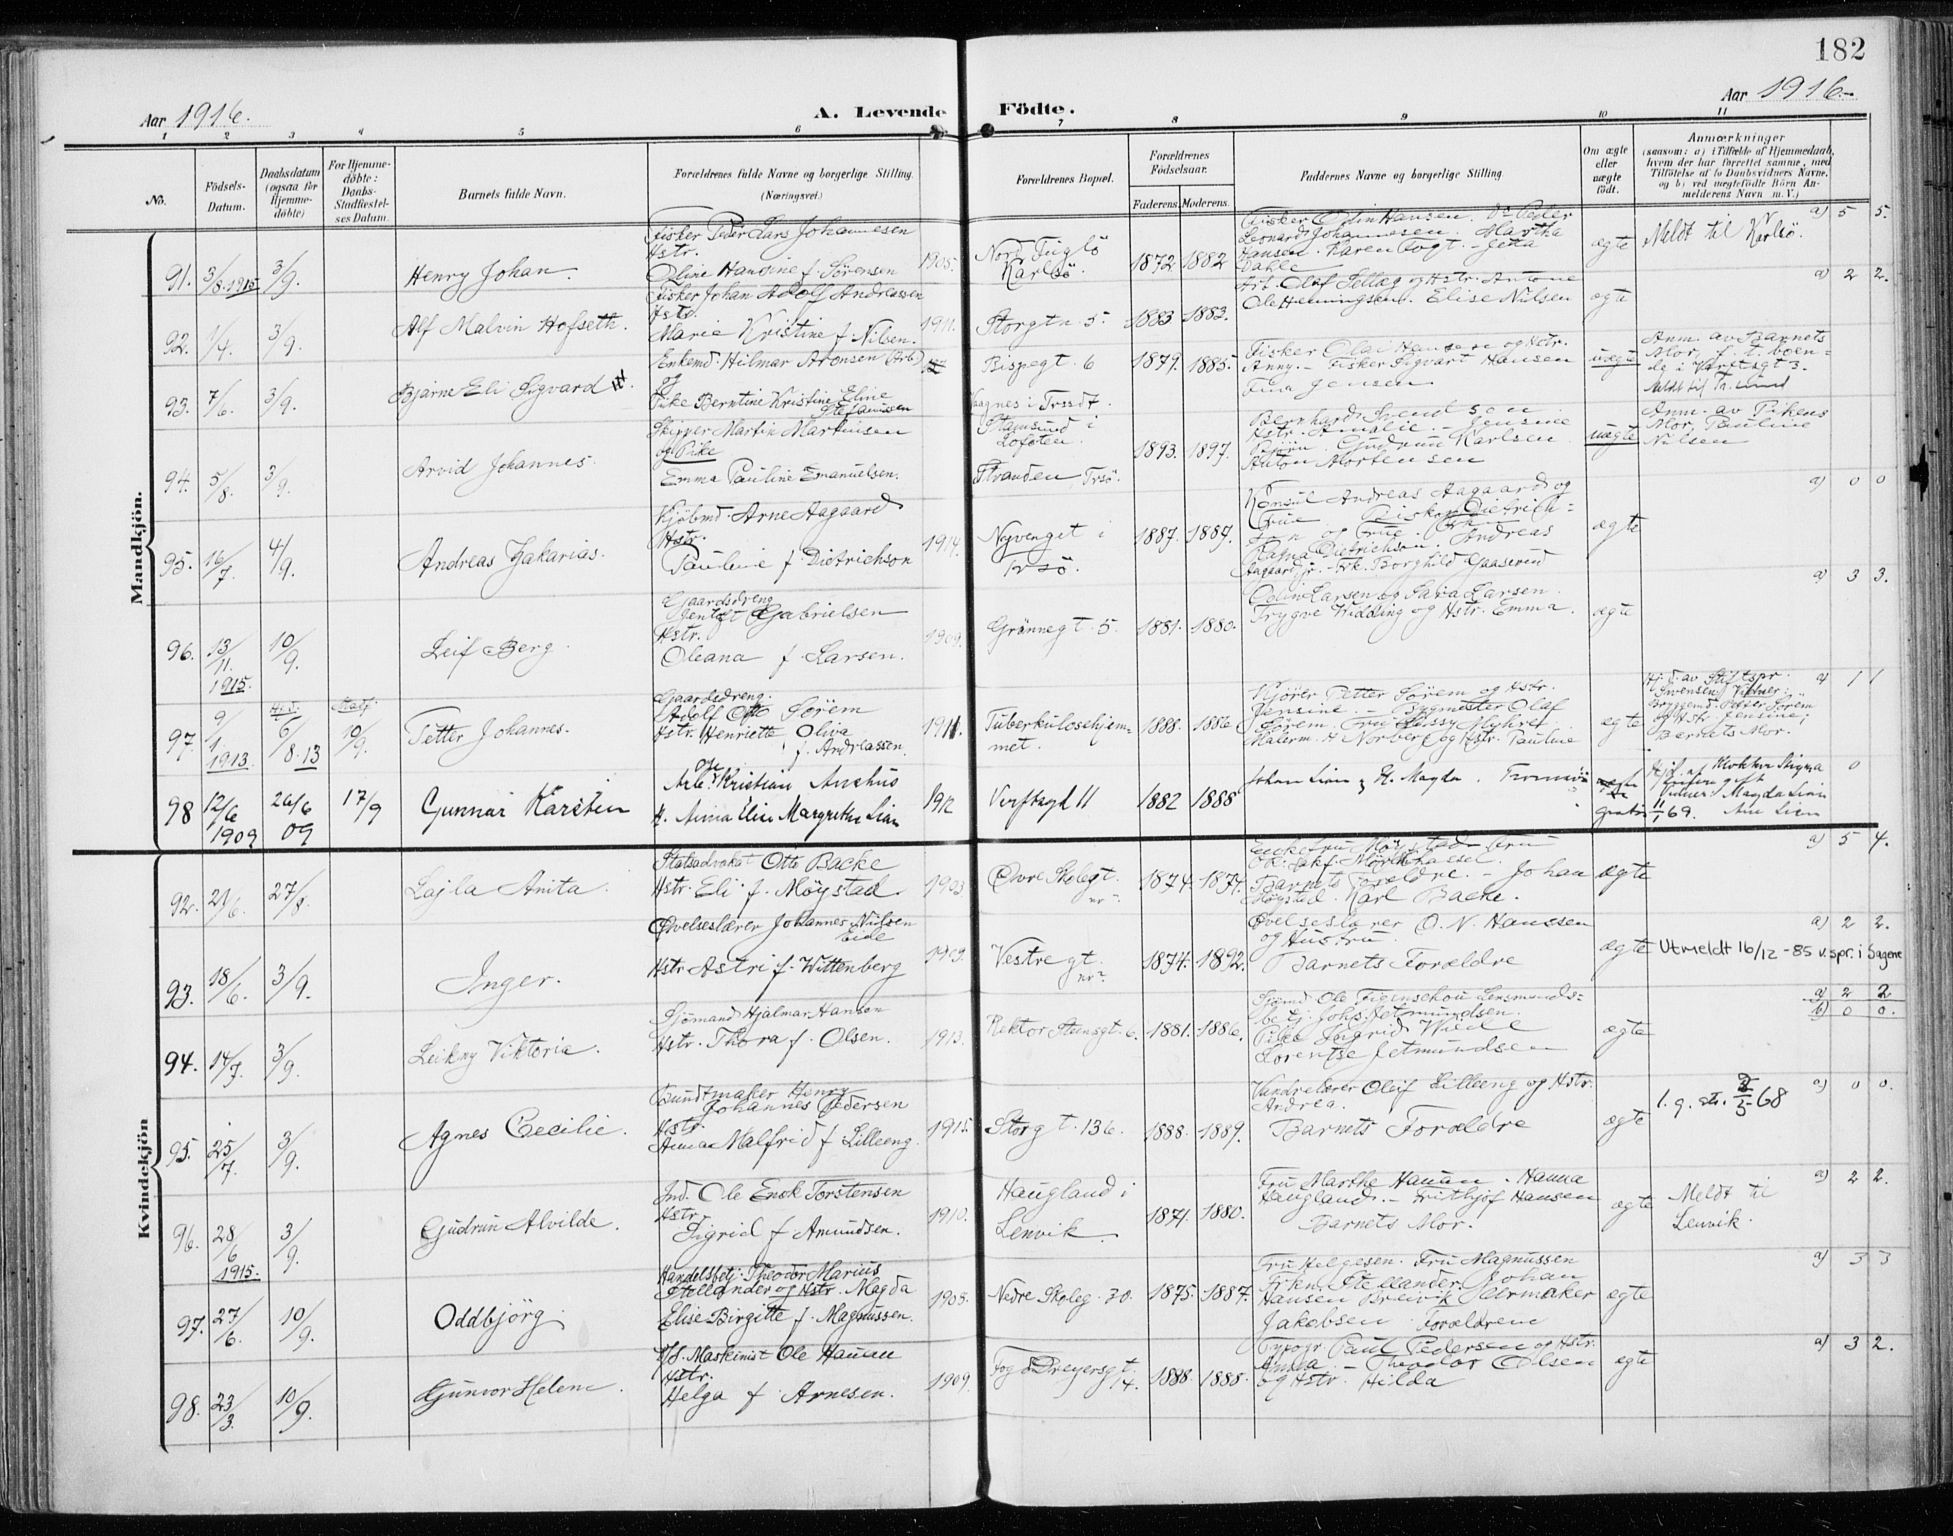 182
Aar 1916.
A. Levende Födte.
Aar 1916.
1 2 3 4 5 6 7 8 9 10 11
No.
Födsels-Datum.
Daabsdatum (ogsaa for Hjemme-döbte)
For Hjemme-döbte: Daabs-Stadfæstel-ses Datum.
Barnets fulde Navn.
Forældrenes fulde Navne og borgerlige Stilling.
(Næringsvei.)
Forældrenes Bopæl.
Forældrenes Födselsaar.
Faderens. Moderens.
Faddernes Navne og borgerlige Stilling
Om ægte eller uægte födt.
Anmærkninger
(saasom: a) i Tilfælde af Hjemmedaab,
hvem der har forrettet samme, med
Tilföielse af to Daabsvidners Navne,
og b) ved uægtefödte Börn An-
melderens Navn m. V.)
Mandkjön.
91. 3/8.1915 3/9. Henry Johan.
Fisker Peder Lars Johannesen
Hstr.
Oline Hansine f. Sörensen
1905.
Nord Fuglö
Karlsö.
1872 1882
Fisker Odin Hansen. Peder
Leonard Johannesen. Martha
Hansen. Karen Fogt. - Jetta
Dahle
ægte
Meldt til Karlsö.
a) 5 5.
92. 1/4. 3/9. Alf Malvin Hofseth.
Fisker Johan Adolf Andreassen
Hstr.
Marie Kristine f. Nilsen.
1911.
Storgtn. 5.
1883 1883.
Arb. Olaf Settag og Hstr. Antone
Ole Henningsen. Elise Nilsen
ægte
a) 2 2.
93. 7/6. 3/9. Bjarne Eli Sigvard
Enkemd. Hilmar Aronsen (Arb.)
og
Pike Berntine Kristine Eline
Stefanussen
Bispegt. 6
1879. 1885.
Fisker Olai Hansen og Hstr.
Anny. - Fisker Sigvart Hansen
Tina Jensen
uægte
Anm. av Barnets
Mor,
i Værftsgt 3.
94. 5/8. 3/9. Arvid Johannes.
Skipper Martin Martinsen
og Pike
Emma Pauline Emanuelsen.
Stamsund i
Lofoten.
Stranden, Trsö.
1893. 1897.
Bernhard Svendsen
Hstr. Amalie. - Jensine
Björn. Gudrun Karlsen
Anton Mortensen
uægte
Anm. av Pikens
Mor, Pauline
Nilsen
95. 16/7. 4/9. Andreas Zakarias.
Kjöbmd. Arne Aagaard
Hstr.
Pauline f Dietrichson
1914.
Nyvenget i
Trsö.
1887. 1889.
Konsul Andreas Aagaard og
Frue. Biskop Dietrich-
son og Frue.
Ragna Dietrichson. Andreas
Aagaard jr. - Frk. Borghild Gaaserud
ægte
a) 0 0
96. 13/11. 1915. 10/9. Leif Berg.
Gaardsdreng
Gentoft Gabrielsen
Hstr.
Oleana f. Larsen.
1909.
Grönnegt. 5.
1881. 1880.
Odin Larsen og Sara Larsen.
Trygve Widding og Hstr. Emma.
ægte
a) 3 3.
97. 9/1 1913. 6/8.13 10/9. Petter Johannes.
Gaardsdreng.
Adolf Otto Sörem
Hstr. Henriette Oliva
f. Andreassen.
1911.
Tuberkulosehjem-
met.
1888. 1886
Kjörer Petter Sörem og Hstr.
Jensine. - Bygmester Olaf
Sörem. Fru Lissy Myhre.
Malerm. H Norberg og Hstr. Pauline
ægte
Hj.d. av Stiftspr.
Swensen; Vitner:
Bryggem. Petter Sörem
og Hstr. Jensine;
Barnets Mor.
a) 1 1
98 12/6 1909 26/6 09 17/9 Gunnar Karsten
Arb. Kristian Aushus
H. Anna Elin Margrethe Lian
1912
Verftsgd 11
1882 1888
Johan Lian og H. Magda. Tromsö
Magda Lian
Kvindekjön
92. 21/6. 27/8. Lajla Anita.
Statsadvokat Otto Backe
Hstr. Eli f. Möystad.
1903
Övre Skolegt.
1874. 1874.
Enkefru Möystad. Fru
Barnets Forældre. - Johan
Möystad. Karl Backe.
ægte
a) 5 4.
93. 18/6. 3/9. Inger.
Övelseslærer Johannes Nilsen
Eide
Hstr Astri f. Wittenberg
Vestregt.
1874. 1892.
Övelseslærer O. N. Hanssen
og Hustru.
Barnets Forældre
ægte
Utmeldt 16/12-85 v. spr. i Sagene
a) 2 2.
94. 14/7. 3/9. Leikny Viktoria.
Sjömand Hjalmar Hansen
Hstr. Thora f. Olsen.
1913.
Rektor Steensgt. 6.
1881. 1886.
Sjömd Ole Figenschou Lensmands-
betj. Johs. Jetmundsen.
Pike Sigrid Wille
Lorentse Jetmundsen
ægte
a) 2 2
b) 0 0.
95. 25/7. 3/9. Agnes Cecilie.
Bundtmaker Henry
Johannes Pedersen
Hstr.
Anna Malfrid f Lilleeng.
1915.
Storgt. 136.
1888. 1889.
Vandrelærer Oleif Lilleeng og Hstr.
Andrea.
Barnets Forældre
ægte
68
a) 0 0.
96. 28/6 1915. 3/9. Gudrun Alvilde.
Ind. Ole Enok Torstensen
Hstr.
Sigrid f Amundsen.
1910.
Haugland i
Lenvik
1871. 1880.
Fru Marthe Hauan. Hanna
Haugland. - Frithjof Hansen
Barnets Mor.
ægte
Meldt til
Lenvik.
a) 2 2.
97. 27/6. 10/9. Oddbjörg
Handelsbetj. Theodor Marius
Stellander og Hstr. Magda
Elise Birgitte f. Magnussen.
1905.
Nedre Skoleg. 30.
1875. 1887.
Fru Helgesen. Fru Magnussen
Frkn. Stellander Johan
Hansen Breivik
Jakobsen. Forældrene
ægte
a) 3 3
98. 23/3. 10/9. Gunvor Helene.
Maskinist Ole Hauan
Hstr.
Helga f Arnesen.
1909.
Fog. Dreyersgt
14.
1888. 1888.
Typogr. Paul Pedersen og Hstr.
Anna. - Theodor Olsen
og Hstr. Hilda
ægte
a) 3 2.